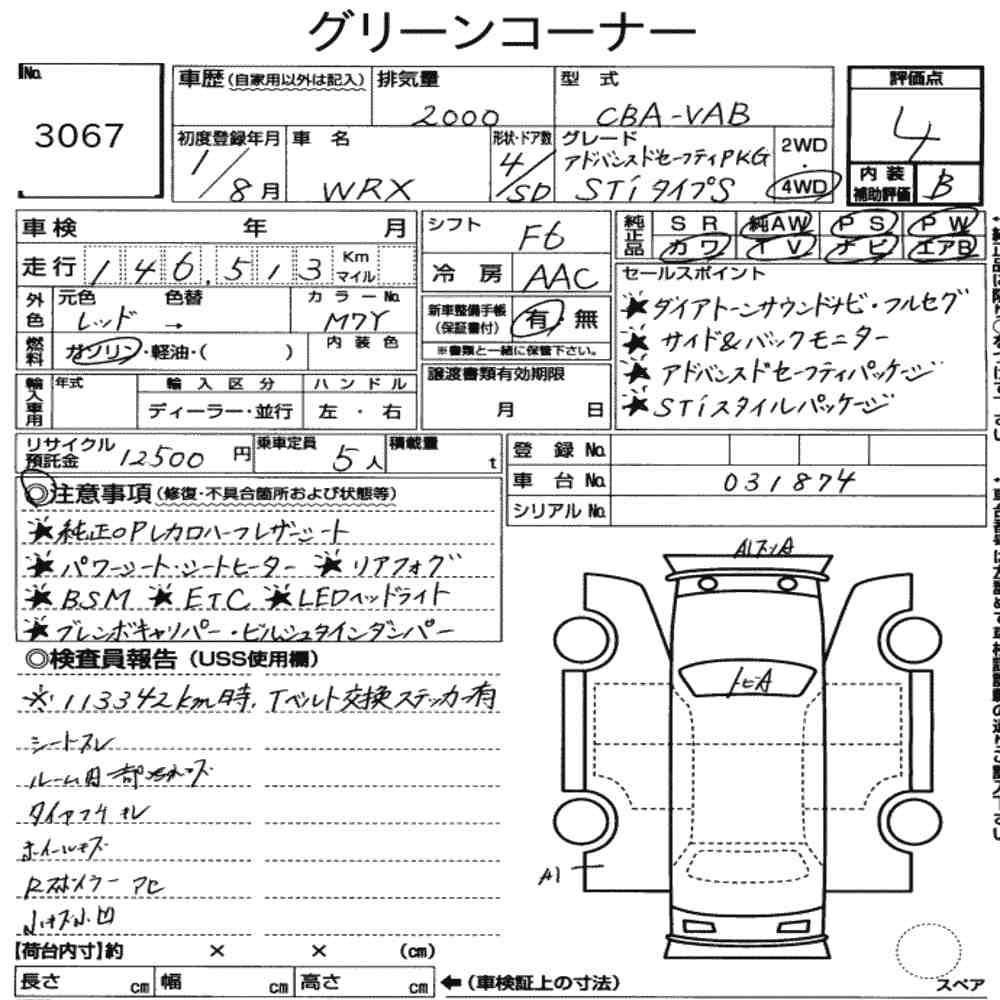 グリーンコーナー
No.
3067
車歴(自家用以外は記入)
排気量
2000
型式
CBA-VAB
評価点
4
内装補助評価
B
初度登録年月
1/8月
車名
WRX
形状・ドア数
4/SD
グレード
アドバンスドセーフティPKG
STiタイプS
2WD
・
4WD
車検 年 月
走行 146,513 Km マイル
外色
元色 色替
レッド →
カラーNo.
M7Y
燃料
ガソリン・軽油・( )
内装色
輸入車用
年式
輸入区分
ディーラー・並行
ハンドル
左・右
シフト F6
冷房 AAC
新車整備手帳(保証書付) 有・無
※書類と一緒に保管下さい。
譲渡書類有効期限
月 日
純正品
SR 純AW PS PW
カワ TV ナビ エアB
セールスポイント
★ダイアトーンサウンドナビ・フルセグ
★サイド&バックモニター
★アドバンスドセーフティパッケージ
★STiスタイルパッケージ
リサイクル預託金 12500円
乗車定員 5人
積載量 t
登録No.
車台No. 031874
シリアルNo.
◎注意事項(修復・不具合箇所および状態等)
★純正OPレカロハーフレザーシート
★パワーシート・シートヒーター ★リアフォグ
★BSM ★ETC ★LEDヘッドライト
★ブレンボキャリパー・ビルシュタインダンパー
◎検査員報告(USS使用欄)
※113342km時、Tベルト交換ステッカー有
シートスレ
ルーム内一部汚れキズ
ホイールキズ
Rスポイラーアセ
小キズ小凹
A1
【荷台内寸】約 × × (cm)
長さ cm 幅 cm 高さ cm
←(車検証上の寸法)
スペア